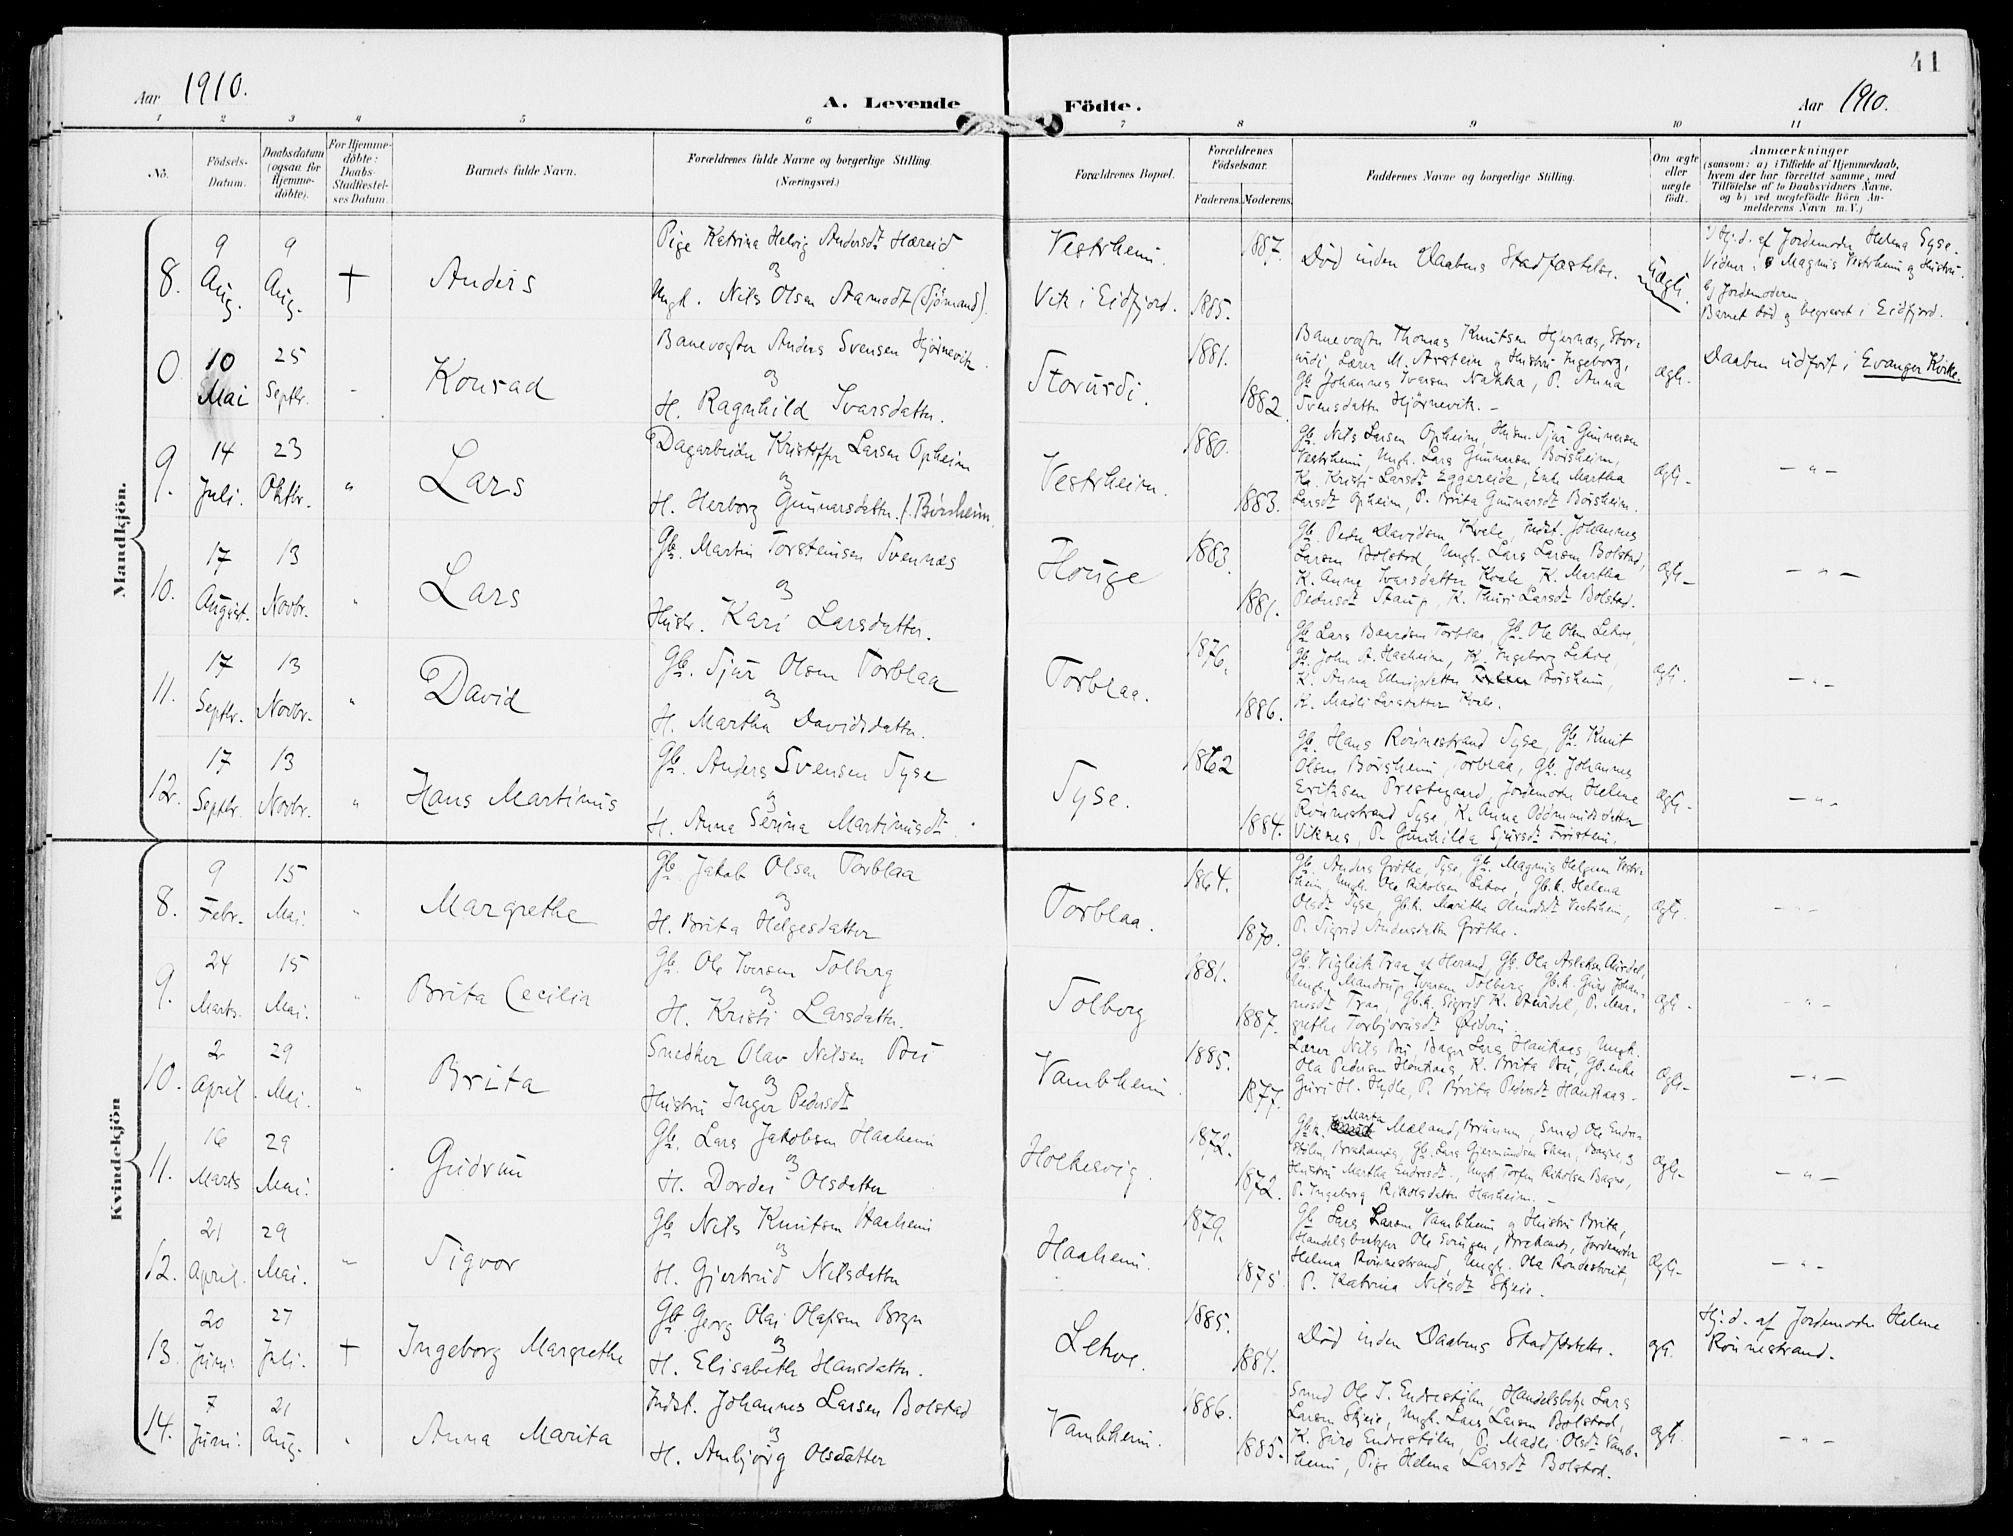 41
Aar 1910.
A. Levende Födte.
Aar 1910.
1 2 3 4 5 6 7 8 9 10 11
No.
Födsels-Datum.
Daabsdatum (ogsaa for Hjemme-döbte).
For Hjemme-döbte: Daabs-Stadfæstel-ses Datum.
Barnets fulde Navn.
Forældrenes fulde Navne og borgerlige Stilling. (Næringsvei.)
Forældrenes Bopæl.
Forældrenes Födselsaar.
Faderens. Moderens.
Faddernes Navne og borgerlige Stilling.
Om ægte eller uægte født.
Anmærkninger
(saasom: a) i Tilfælde af Hjemmedaab,
hvem der har forrettet samme, med
Tilföielse af to Daabsvidners Navne,
og b) ved uægtefödte Börn An-
melderens Navn m. V.)
Mandkjön.
8. 9 Aug. 9 Aug. † Anders
Pige Katrina Helvig Andersdt Hæreid
og
Ungk. Nils Olsen Aamodt (Sjömand).
Vestrheim.
Vik i Eidfjord.
1887.
1885.
Död inden Daabens Stadfæstelse.
Uægte.
Hj.d. af Jordemoder Helena Syse.
Vidner: Magnus Vestrheim og Hustru.
b) Jordemoderen
Barnet död og begravet i Eidfjord.
0 10 Mai 25 Septbr. - Konrad
Banevogter Anders Svensen Hjörnevik
og
H. Ragnhild Ivarsdatter.
Storurdi.
1881.
1882
Banevogter Thomas Knutsen Hjernæs, Stor-
urdi, Lærer M. Arstein og Hustru Ingeborg,
Gb. Johannes Iversen Nakka, P. Anna
Svensdatter Hjörnevik. -
ægte.
Daaben udfört i Evanger Kirke.
9. 14 Juli. 23 Oktbr. " Lars
Dagarbeider Kristoffer Larsen Opheim
og
H. Herborg Gunnarsdatter f. Börsheim.
Vestrheim.
1880.
1883.
Gb. Nils Larsen Opheim, Husm. Sjur Gunnarsen
Vestrheim, Ungk. Lars Gunnarsen Börsheim,
K. Kristi Larsdt Eggereide, Enke Martha
Larsdt Opheim, P. Brita Gunnarsdt Börsheim.
ægte -
- " -
10. 17 August. 13 Novbr. " Lars
Gb. Martin Torsteinsen Svennæs
og
Hustr. Kari Larsdatter.
Houge
1883.
1881.
Gb. Peder Davidsen Kvale, Indst. Johannes
Larsen Bolstad, Ungk. Lars Larsen Bolstad,
K. Anna Ivarsdatter Kvale, K. Martha
Pedersdt Staup, K. Thuri Larsdt Bolstad.
ægte -
- " -
11. 17 Septbr. 13 Novbr. " David
Gb. Sjur Olsen Torblaa
og
H. Martha Davidsdatter.
Torblaa.
1876.
1886.
Gb. Lars Baardsen Torblaa, Gb. Ole Olsen Lekve,
Gb. John A. Haaheim, K. Ingeborg Lekve,
K. Anna Ellingsdatter Börsheim,
K. Madli Larsdatter Kvale.
ægte.
- " -
12. 17 Septbr. 13 Novbr. " Hans Martinus
Gb. Anders Svensen Syse
og
H. Anna Serina Martinusdt.
Syse.
1862
1884.
Gb. Hans Rönnestrand Syse, Gb. Knut
Olsen Börsheim Torblaa, Gb. Johannes
Eriksen Prestegaard, Jordemoder Helene
Rönnestrand Syse, K. Anna Oddmundsdatter
Viknes, P. Gunhilda Sjursdt Tveisteim.
ægte -
- " -
Kvindekjön
8. 9 Febr. 15 Mai. " Margrethe
Gb. Jakob Olsen Torblaa
og
H. Brita Helgesdatter
Torblaa.
1864.
1870.
Gb. Anders Gröthe, Syse, Gb. Magnus Helgesen Vestr-
heim, Ungk. Ole Rikolsen Lekve, Gb.k. Helena
Olsdt Syse, Gb.k. Maritha Vestrheim,
P. Sigrid Andersdatter Gröthe.
ægte.
- " -
9. 24 Marts. 15 Mai. " Brita Cecilia
Gb. Ole Iversen Solberg
og
H. Kristi Larsdatter.
Solberg
1881.
1887.
Gb. Vigleik Traa af Herand, Gb. Ola Aslaksen Aurdal,
Ungk. Mandrup Iversen Solberg, Gb.k. Guro Johan-
nesdt Traa, Gb.k. Sigrid K. Aurdal, P. Mar-
grethe Torbjörnsdt Öidvin.
ægte -
- " -
10. 2 April. 29 Mai. " Brita
Snedker Olav Nilsen Bu
og
Hustru Inger Pedersdt
Vambheim.
1885.
1877.
Lærer Nils Bu, Bager Lars Haukaas, Ungk.
Ola Pedersen Haukaas, K. Brita Bu, Gb.enke
Guri H. Hylle, P. Brita Pedersdt Haukaas.
ægte -
- " -
11. 16 Marts 29 Mai. . Gudrun
Gb. Lars Jakobsen Haaheim
og
H. Dordei Olsdatter
Holkesvig.
1872.
1872.
Gb.k. Marta Mæland, Bruravik, Smed Ole Endre-
stölen, Brækanes, Gb. Lars Gjermundsen Skaar, Bagne, og
Hustru Martha Endresdt., Ungk. Torfin Rikolsen Bagne,
P. Ingeborg Rikolsdatter Haaheim. -
ægte -
- " -
12. 21 April. 29 Mai. " Sigvor
Gb. Nils Knutsen Haaheim
og
H. Gjertrud Nilsdatter
Haaheim.
1879.
1875
Gb. Lars Larsen Vambheim og Hustru Brita,
Handelsbetjen Ole Svingen, Brækanes, Jordemoder
Helena Rönnestrand, Ungk. Ola Rondestveit,
P. Katrina Nilsdt Skjeie.
ægte -
- " -
13. 20 Juni. 27 Juli. † Ingeborg Margrethe
Gb. Georg Olai Olafsen Bryn
og
H. Elisabeth Hansdatter.
Lekve.
1885.
1884.
Död inden Daabens Stadfæstelse.
ægte.
Hj.d. af Jordemoder Helene
Rönnestrand.
14. 7 Juni. 21 Aug. " Anna Marita
Indst. Johannes Larsen Bolstad
og
H. Ambjörg Olsdatter
Vambheim.
1886.
1885.
Smed Ole J. Endrestölen, Handelsbetj. Lars
Larsen Skjeie, Ungk. Lars Larsen Bolstad,
K. Guro Endrestölen, P. Madli Olsdt Vamb-
heim, Pige Helena Larsdt Bolstad.
ægte.
- " -